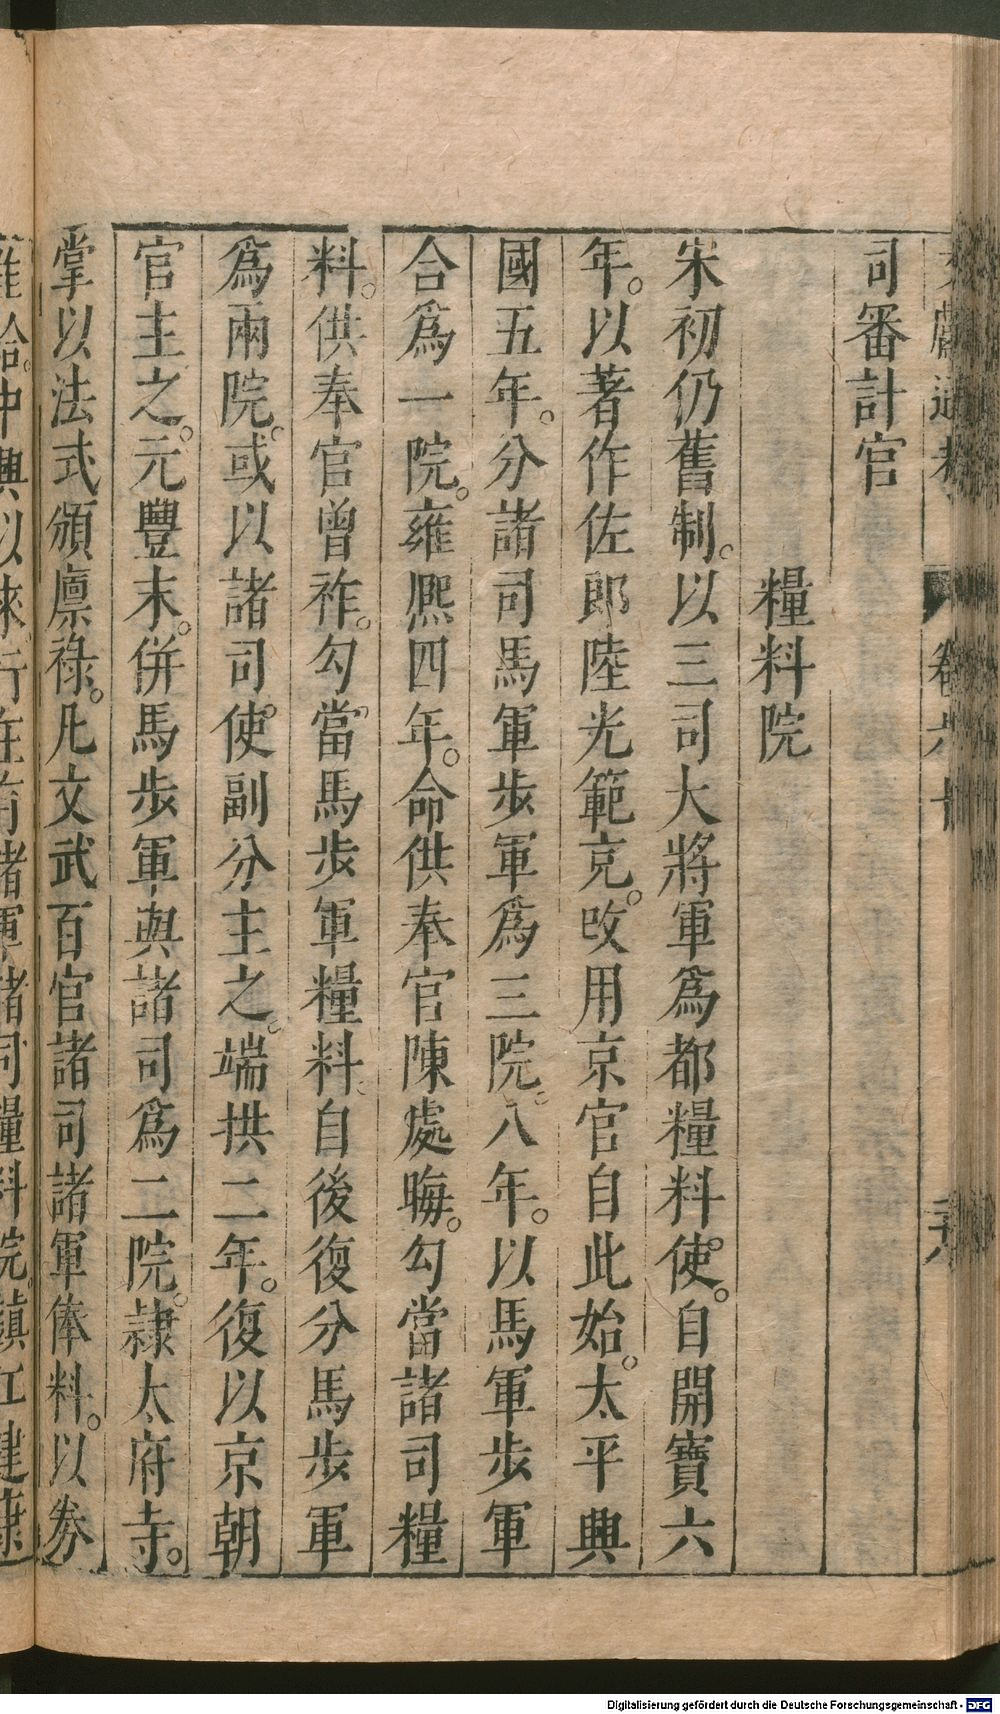 文獻通考 卷六十 二十八
司審計官
糧料院
宋初仍舊制。以三司大將軍爲都糧料使。自開寶六
年。以著作佐郎陸光範克。改用京官自此始。太平興
國五年。分諸司馬軍步軍爲三院。八年。以馬軍步軍
合爲一院。雍熙四年。命供奉官陳處晦。勾當諸司糧
料。供奉官曾祚。勾當馬步軍糧料。自後復分馬步軍
爲兩院。或以諸司使副分主之。端拱二年。復以京朝
官主之。元豐末。併馬步軍與諸司爲二院。隷太府寺。
掌以法式頒廪祿。凡文武百官諸司諸軍俸料。以券
准給。中興以來。行在有諸軍諸司糧料院。鎮江建康
Digitalisierung gefördert durch die Deutsche Forschungsgemeinschaft - DFG